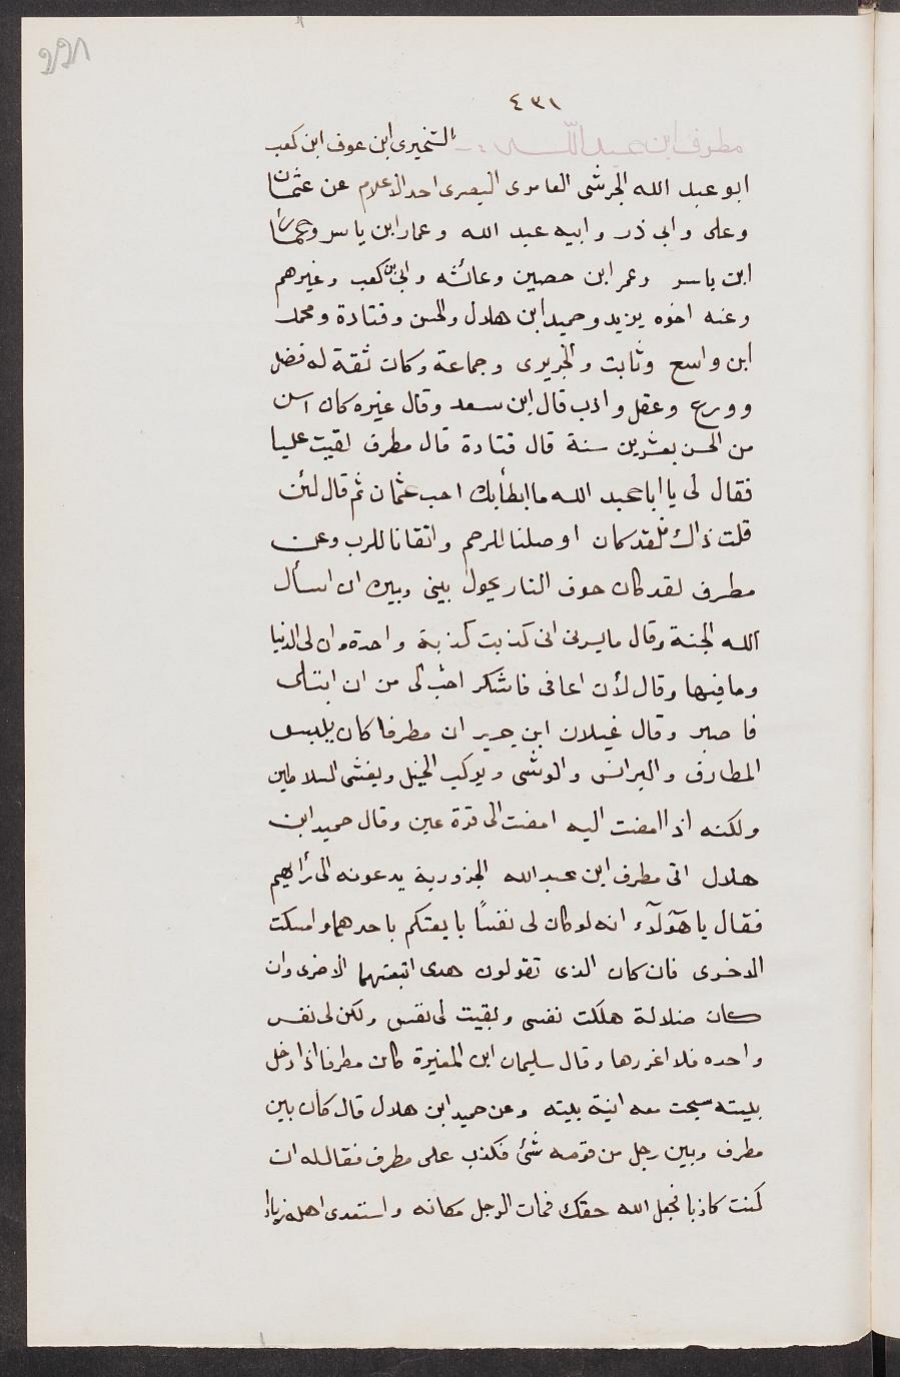 ٤٣١
مطرف ابن عبد الله : ـ الشخيرى ابن عوف ابن كعب
ابو عبد الله الجرشى العامرى البصرى احد الاعلام عن عثمان
وعلى وابى ذر وابيه عبد الله وعمار ابن ياسر وعمار
ابن ياسر وعمر ابن حصين وعائشه وابى بن كعب وغيرهم
وعنه اخوه يزيد وحميد ابن هلال والحسن وقتادة ومحمد
ابن واسع وثابت والجريرى وجماعة وكان ثقة له فضل
وورع وعقل وادب قال ابن سعد وقال غيره كان اسن
من الحسن بعشرين سنة قال قتادة قال مطرف لقيت عليا
فقال لى يا ابا عبد الله ما ابطأ بك احب عثمان ثم قال لئن
قلت ذاك فلقد كان اوصلنا للرحم واتقانا للرب وعن
مطرف لقد كان خوف النار يحول بينى وبين ان اسأل
الله الجنة وقال ما يسرنى انى كذبت كذبة واحدة وان لى الدنيا
وما فيها وقال لأن اعافى فاشكر احب الى من ان ابتلى
فاصبر وقال غيلان ابن جرير ان مطرفا كان يلبس
المطارف والبرانس والوشى ويركب الخيل ويغشى السلاطين
ولكنه اذا افضت اليه افضت الى قرة عين وقال حميد ابن
هلال اتى مطرف ابن عبد الله الجزورية يدعونه الى رأيهم
فقال يا هؤلآء انه لو كان لى نفسًا بايعتكم باحدهما وامسكت
الاخرى فان كان الذى تقولون هدى اتبعتهما الاخرى وان
كان ضلالة هلكت نفسى وبقيت لى نفس ولكن لى نفس
واحده فلا اغررها وقال سليمان ابن المغيرة كان مطرفا اذا دخل
بيته سبحت معه انية بيته وعن حميد ابن هلال قال كان بين
مطرف وبين رجل من قومه شئ فكذب على مطرف فقال له ان
كنت كاذبا فجعل الله حقك فمات الرجل مكانه واستعدى اهله زيادا